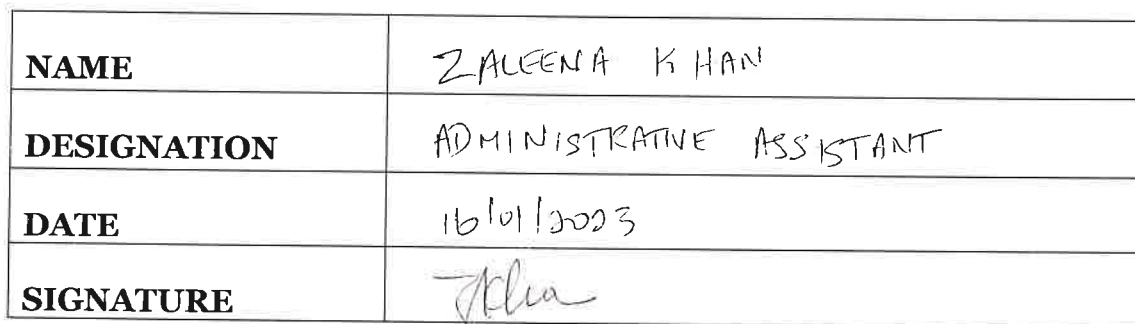 NAME ZALEENA KHAN
DESIGNATION ADMINISTRATIVE ASSISTANT
DATE 16/01/2023
SIGNATURE